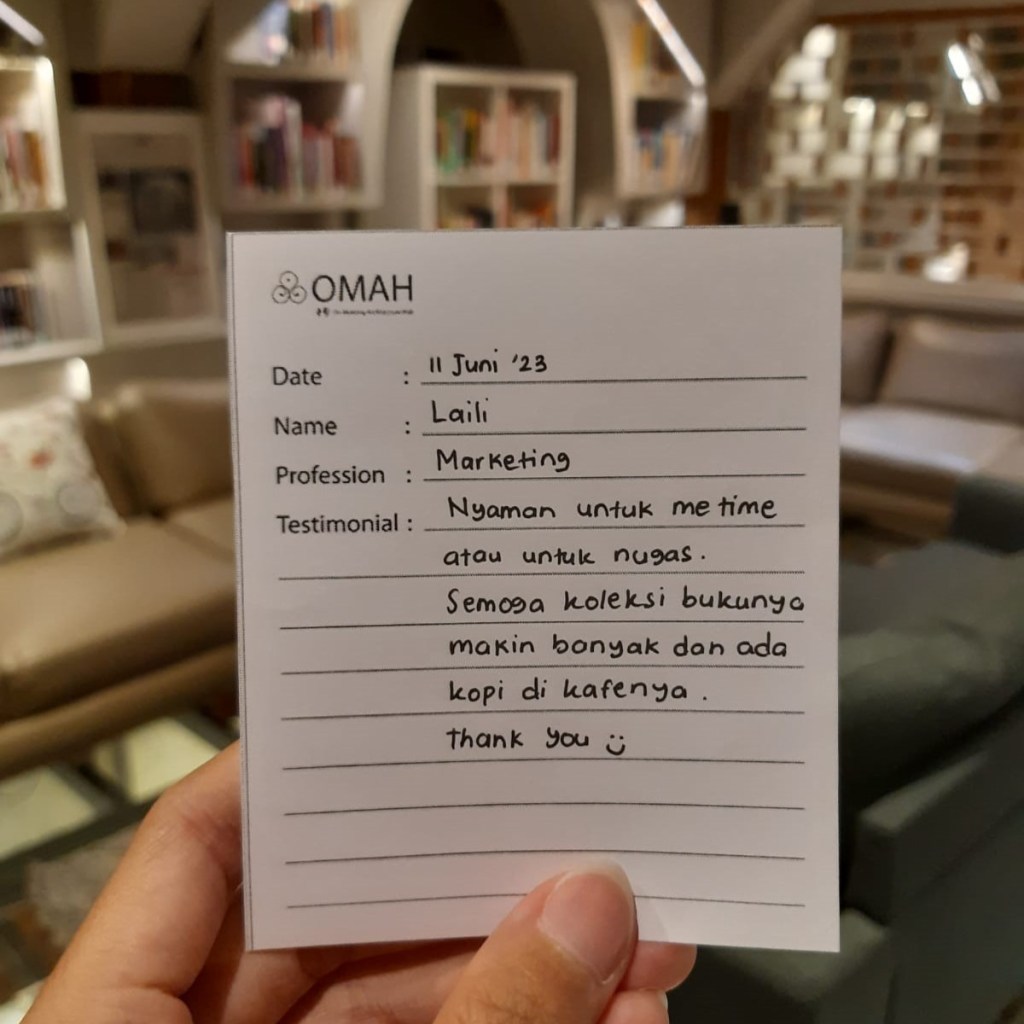 OMAH
Date : 11 Juni '23
Name : Laili
Profession : Marketing
Testimonial : Nyaman untuk me time
atau untuk nugas.
Semoga koleksi bukunya
makin banyak dan ada
kopi di kafenya.
thank you